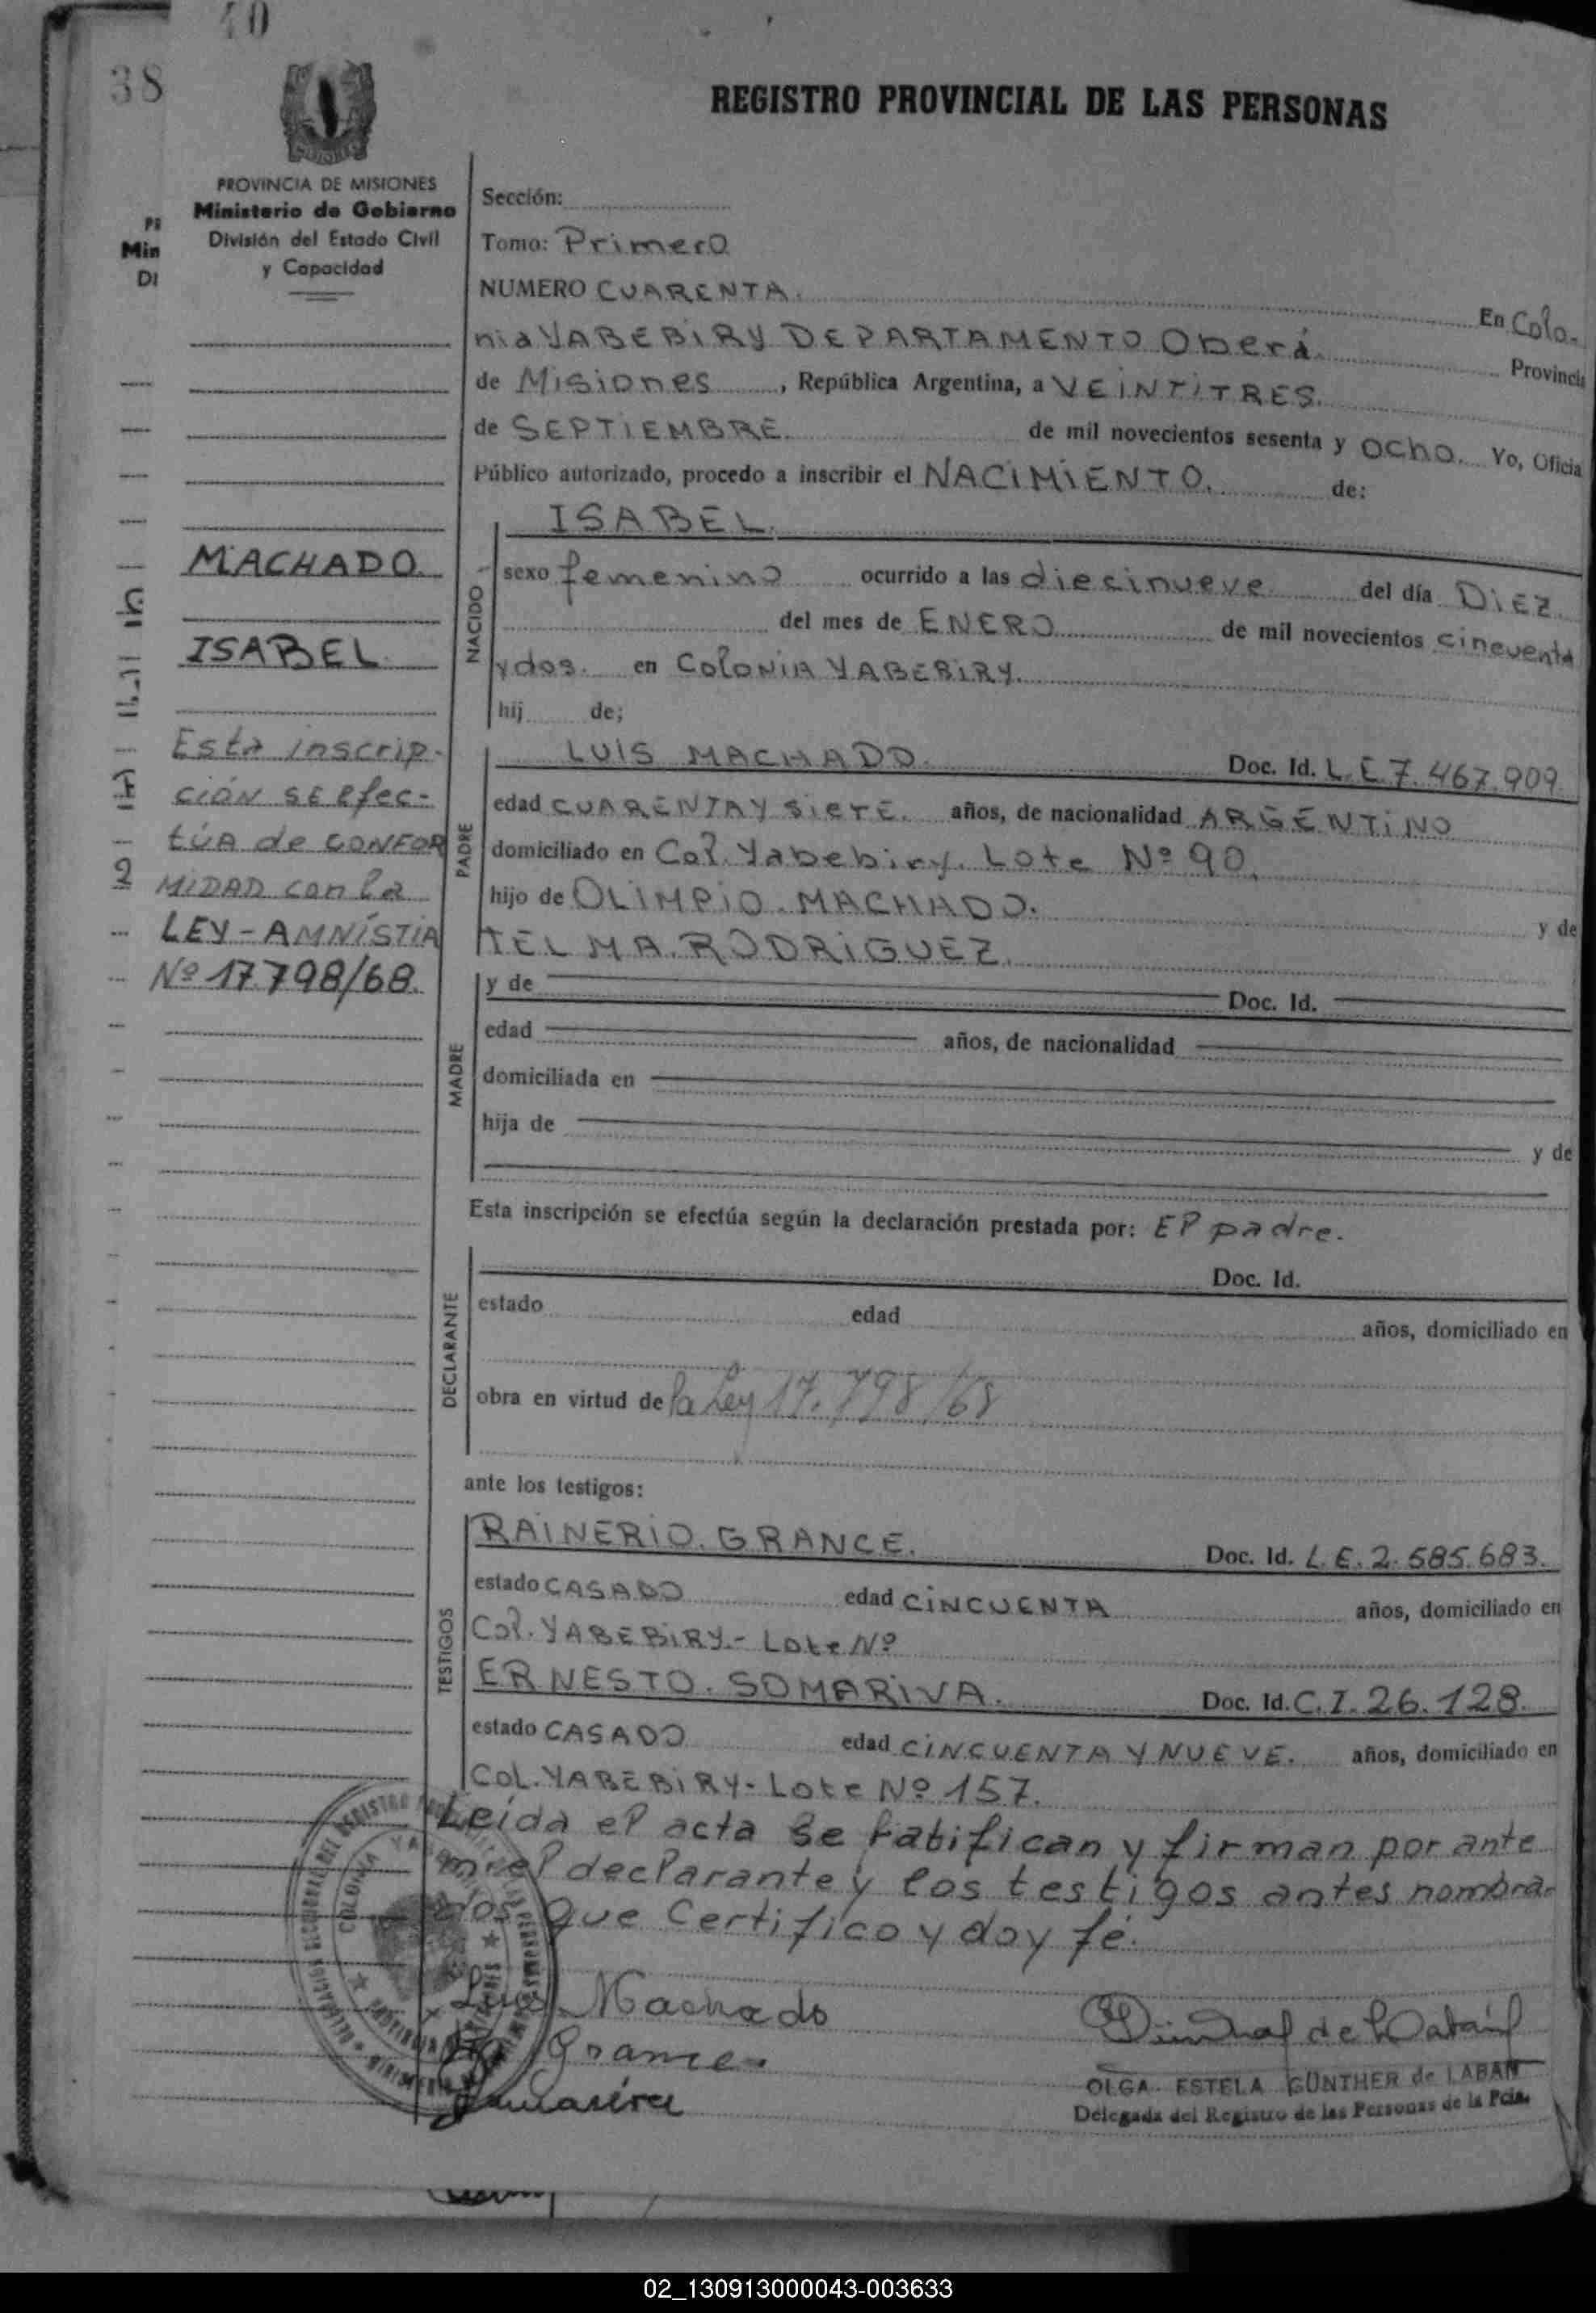 40
38
REGISTRO PROVINCIAL DE LAS PERSONAS
PROVINCIA DE MISIONES
Ministerio de Gobierno
División del Estado Civil
y Capacidad
Pi
Min
Di
MACHADO
ISABEL
Esta inscrip-
ción se efec-
túa de CONFOR
MIDAD con la
LEY-AMNÍSTIA
Nº 17.798/68.
Sección:
Tomo: Primero
NUMERO CUARENTA. En Colo-
nia YABEBIRY DEPARTAMENTO Oberá. Provincia
de Misiones, República Argentina, a VEINTITRES.
de SEPTIEMBRE. de mil novecientos sesenta y ocho. Yo, Oficia
Público autorizado, procedo a inscribir el NACIMIENTO. de:
NACIDO
ISABEL.
sexo femenino ocurrido a las diecinueve del día DIEZ.
del mes de ENERO de mil novecientos cincuenta
y dos. en COLONIA YABEBIRY.
hij de;
PADRE
LUIS MACHADO. Doc. Id. L.E. 7.467.909
edad CUARENTA Y SIETE. años, de nacionalidad ARGENTINO
domiciliado en Col. Yabebiry. Lote Nº 90.
hijo de OLIMPIO. MACHADO. y de
TELMA. RODRIGUEZ.
MADRE
y de Doc. Id.
edad años, de nacionalidad
domiciliada en
hija de y de
Esta inscripción se efectúa según la declaración prestada por: El padre.
DECLARANTE
Doc. Id.
estado edad años, domiciliado en
obra en virtud de la Ley 17.798/68
ante los testigos:
TESTIGOS
RAINERIO. GRANCE. Doc. Id. L.E. 2.585.683.
estado CASADO edad CINCUENTA años, domiciliado en
Col. YABEBIRY.- Lote Nº
ERNESTO. SOMARIVA. Doc. Id. C.I. 26.128.
estado CASADO edad CINCUENTA Y NUEVE. años, domiciliado en
COL. YABEBIRY- Lote Nº 157.
Leída el acta se ratifican y firman por ante
mi el declarante y los testigos antes nombra-
dos que Certifico y doy fé.
Luis Machado
Grance.
OLGA ESTELA GÜNTHER de LABAN
Delegada del Registro de las Personas de la Pcia.
02_130913000043-003633